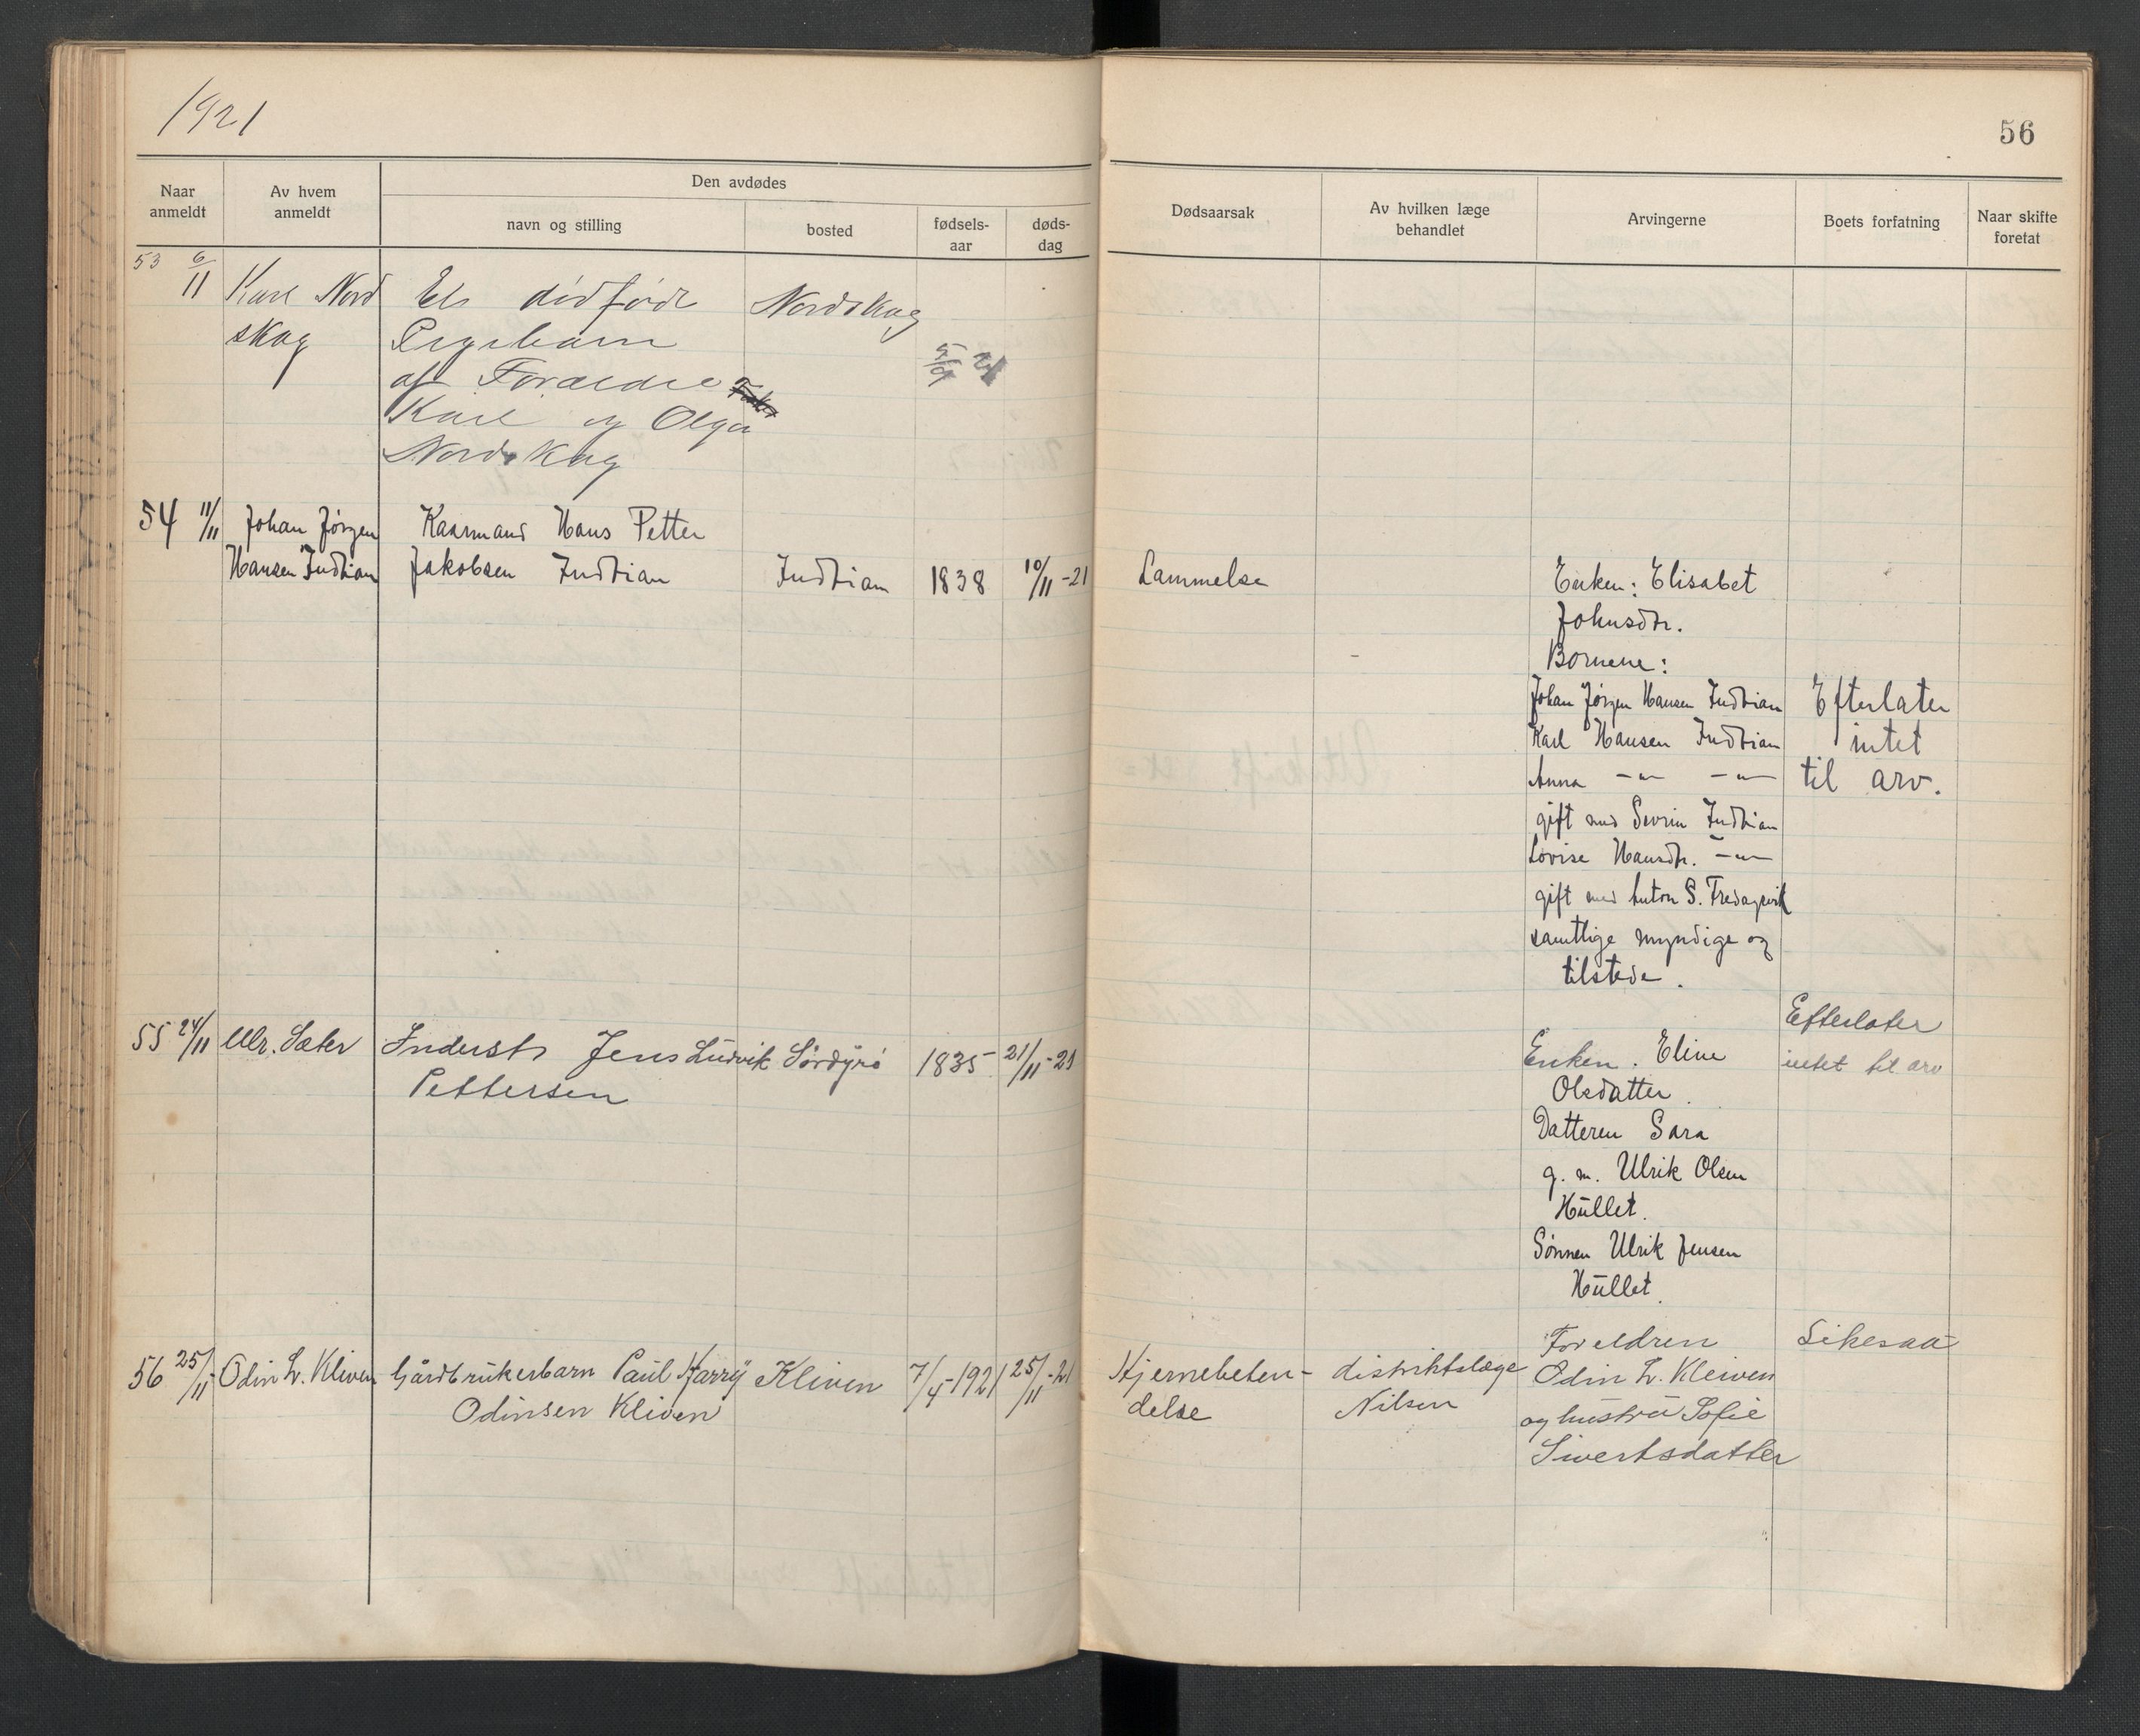 1921
56
Naar anmeldt
Av hvem anmeldt
Den avdødes
navn og stilling
bosted
fødsels-aar
døds-dag
Dødsaarsak
Av hvilken læge behandlet
Arvingerne
Boets forfatning
Naar skifte foretat
53 6/11 Karl Nord
skog
Et dødfødt
Pigebarn
af Forældre
Karl og Olga
Nordskog
Nordskog
5/9 21
54 11/11 Johan Jörgen
Hansen Indbian
Kaarmand Hans Petter
Jakobsen Indbian
Indbian
1838
10/11-21
Lammelse
Enken: Elisabet
Johnsdtr.
Börnene:
Johan Jörgen Hansen Indbian
Karl Hansen Indbian
Anna -"- -"-
gift med Sevrin Indbian
Lovise Hansdtr. -"-
gift med Anton S. Fredagsvik
samtlige myndige og
tilstede.
Efterlater
intet
til arv.
55 24/11 Ulr. Sæter
Inderst Jens Ludvik
Pettersen
Sördyrö
1835
21/11-21
Enken. Eline
Olsdatter.
Datteren Sara
g. m. Ulrik Olsen
Hullet.
Sönnen Ulrik Jensen
Hullet.
Efterlater
intet til arv
56 25/11 Odin L. Kliven
Gårdbrukerbarn Paul Harry
Odinsen Kliven
Kliven
7/4-1921
25/11-21
Hjernebeten-
delse
distriktslæge
Nilsen
Foreldren
Odin L. Kleiven
og hustru Sofie
Sivertsdatter
Likesaa